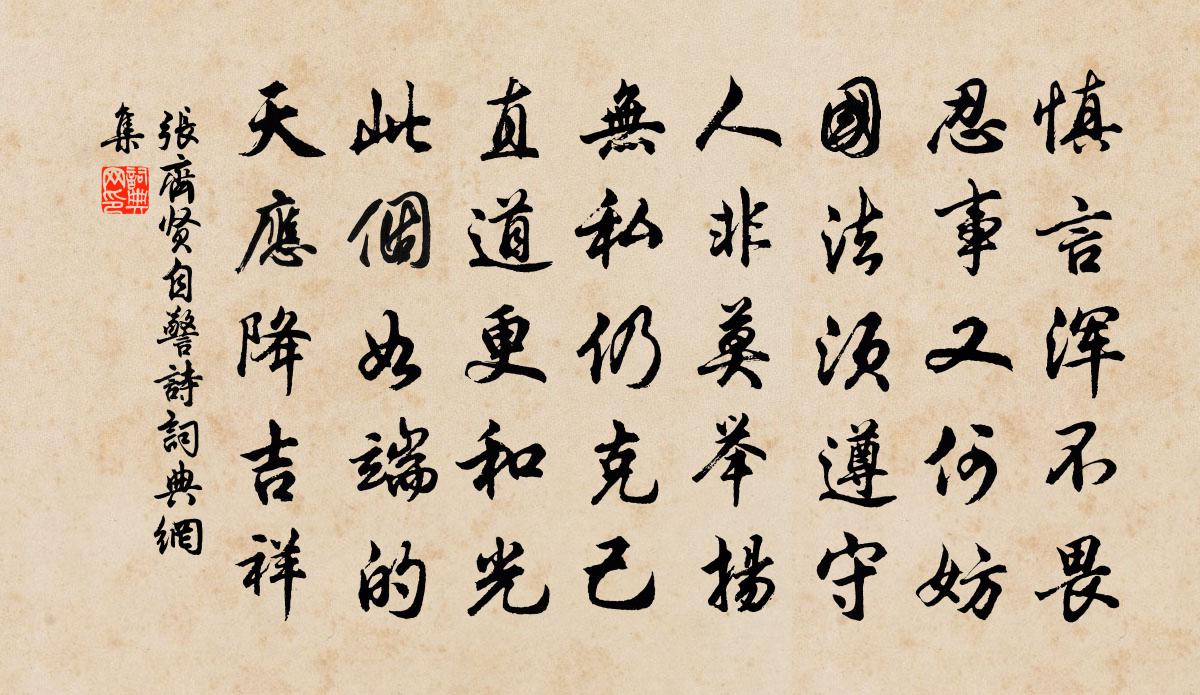 慎言浑不畏
忍事又何妨
國法須遵守
人非莫举揚
無私仍克己
直道更和光
此個如端的
天應降吉祥
張齊贤自警詩詞典網
集
詞典
网印